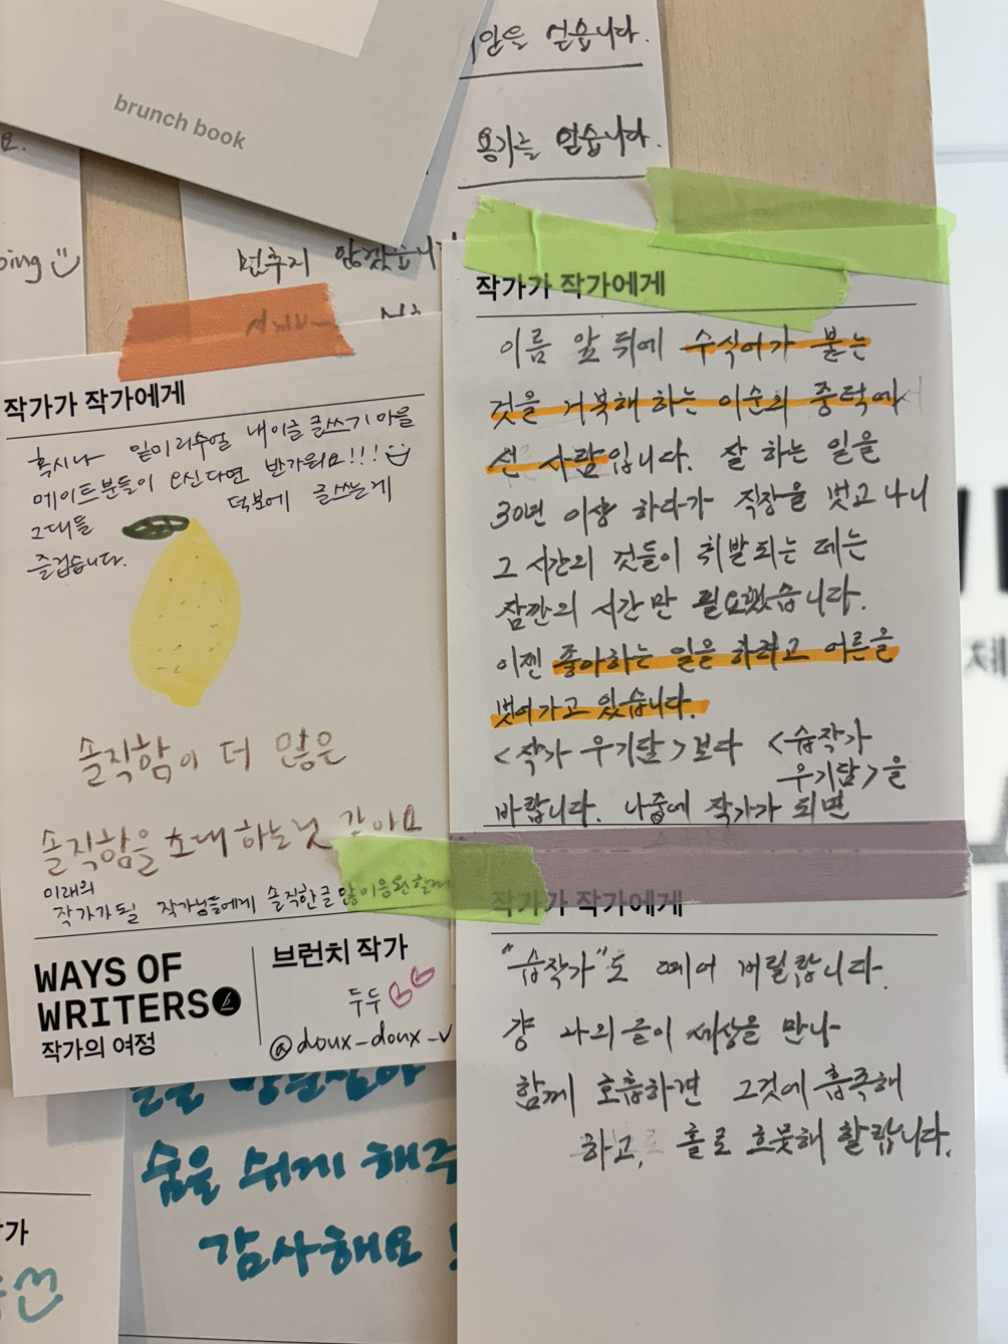 brunch book
얻습니다.
용기를 얻습니다.
멈추지 않겠습니
작가가 작가에게
혹시나 밑미리추얼 내이글글쓰기마을
메이트분들이 오신다면 반가워요!!!
그대들 덕분에 글쓰는게
즐겁습니다.
솔직함이 더 많은
솔직함을 초대하는 것 같아요
미래의
작가가 될 작가님들에게 솔직한 글 많이 응원할게
WAYS OF
WRITERS
작가의 여정
브런치 작가
두두
@doux_doux_v
숨을 쉬게 해주
감사해요!
작가가 작가에게
이름 앞 뒤에 수식어가 붙는
것을 거북해 하는 이순의 중턱에
선 사람입니다. 잘 하는 일을
30년 이상 하다가 직장을 벗고 나니
그 시간의 것들이 휘발되는 데는
잠깐의 시간만 필요했습니다.
이젠 좋아하는 일을 하려고 어른을
벗어가고 있습니다.
<작가 우기달>보다 <습작가
우기달>을
바랍니다. 나중에 작가가 되면
작가가 작가에게
"습작가"도 떼어 버릴랍니다.
걍 나의 글이 세상을 만나
함께 호흡하면 그것에 흡족해
하고, 홀로 흐뭇해 할랍니다.